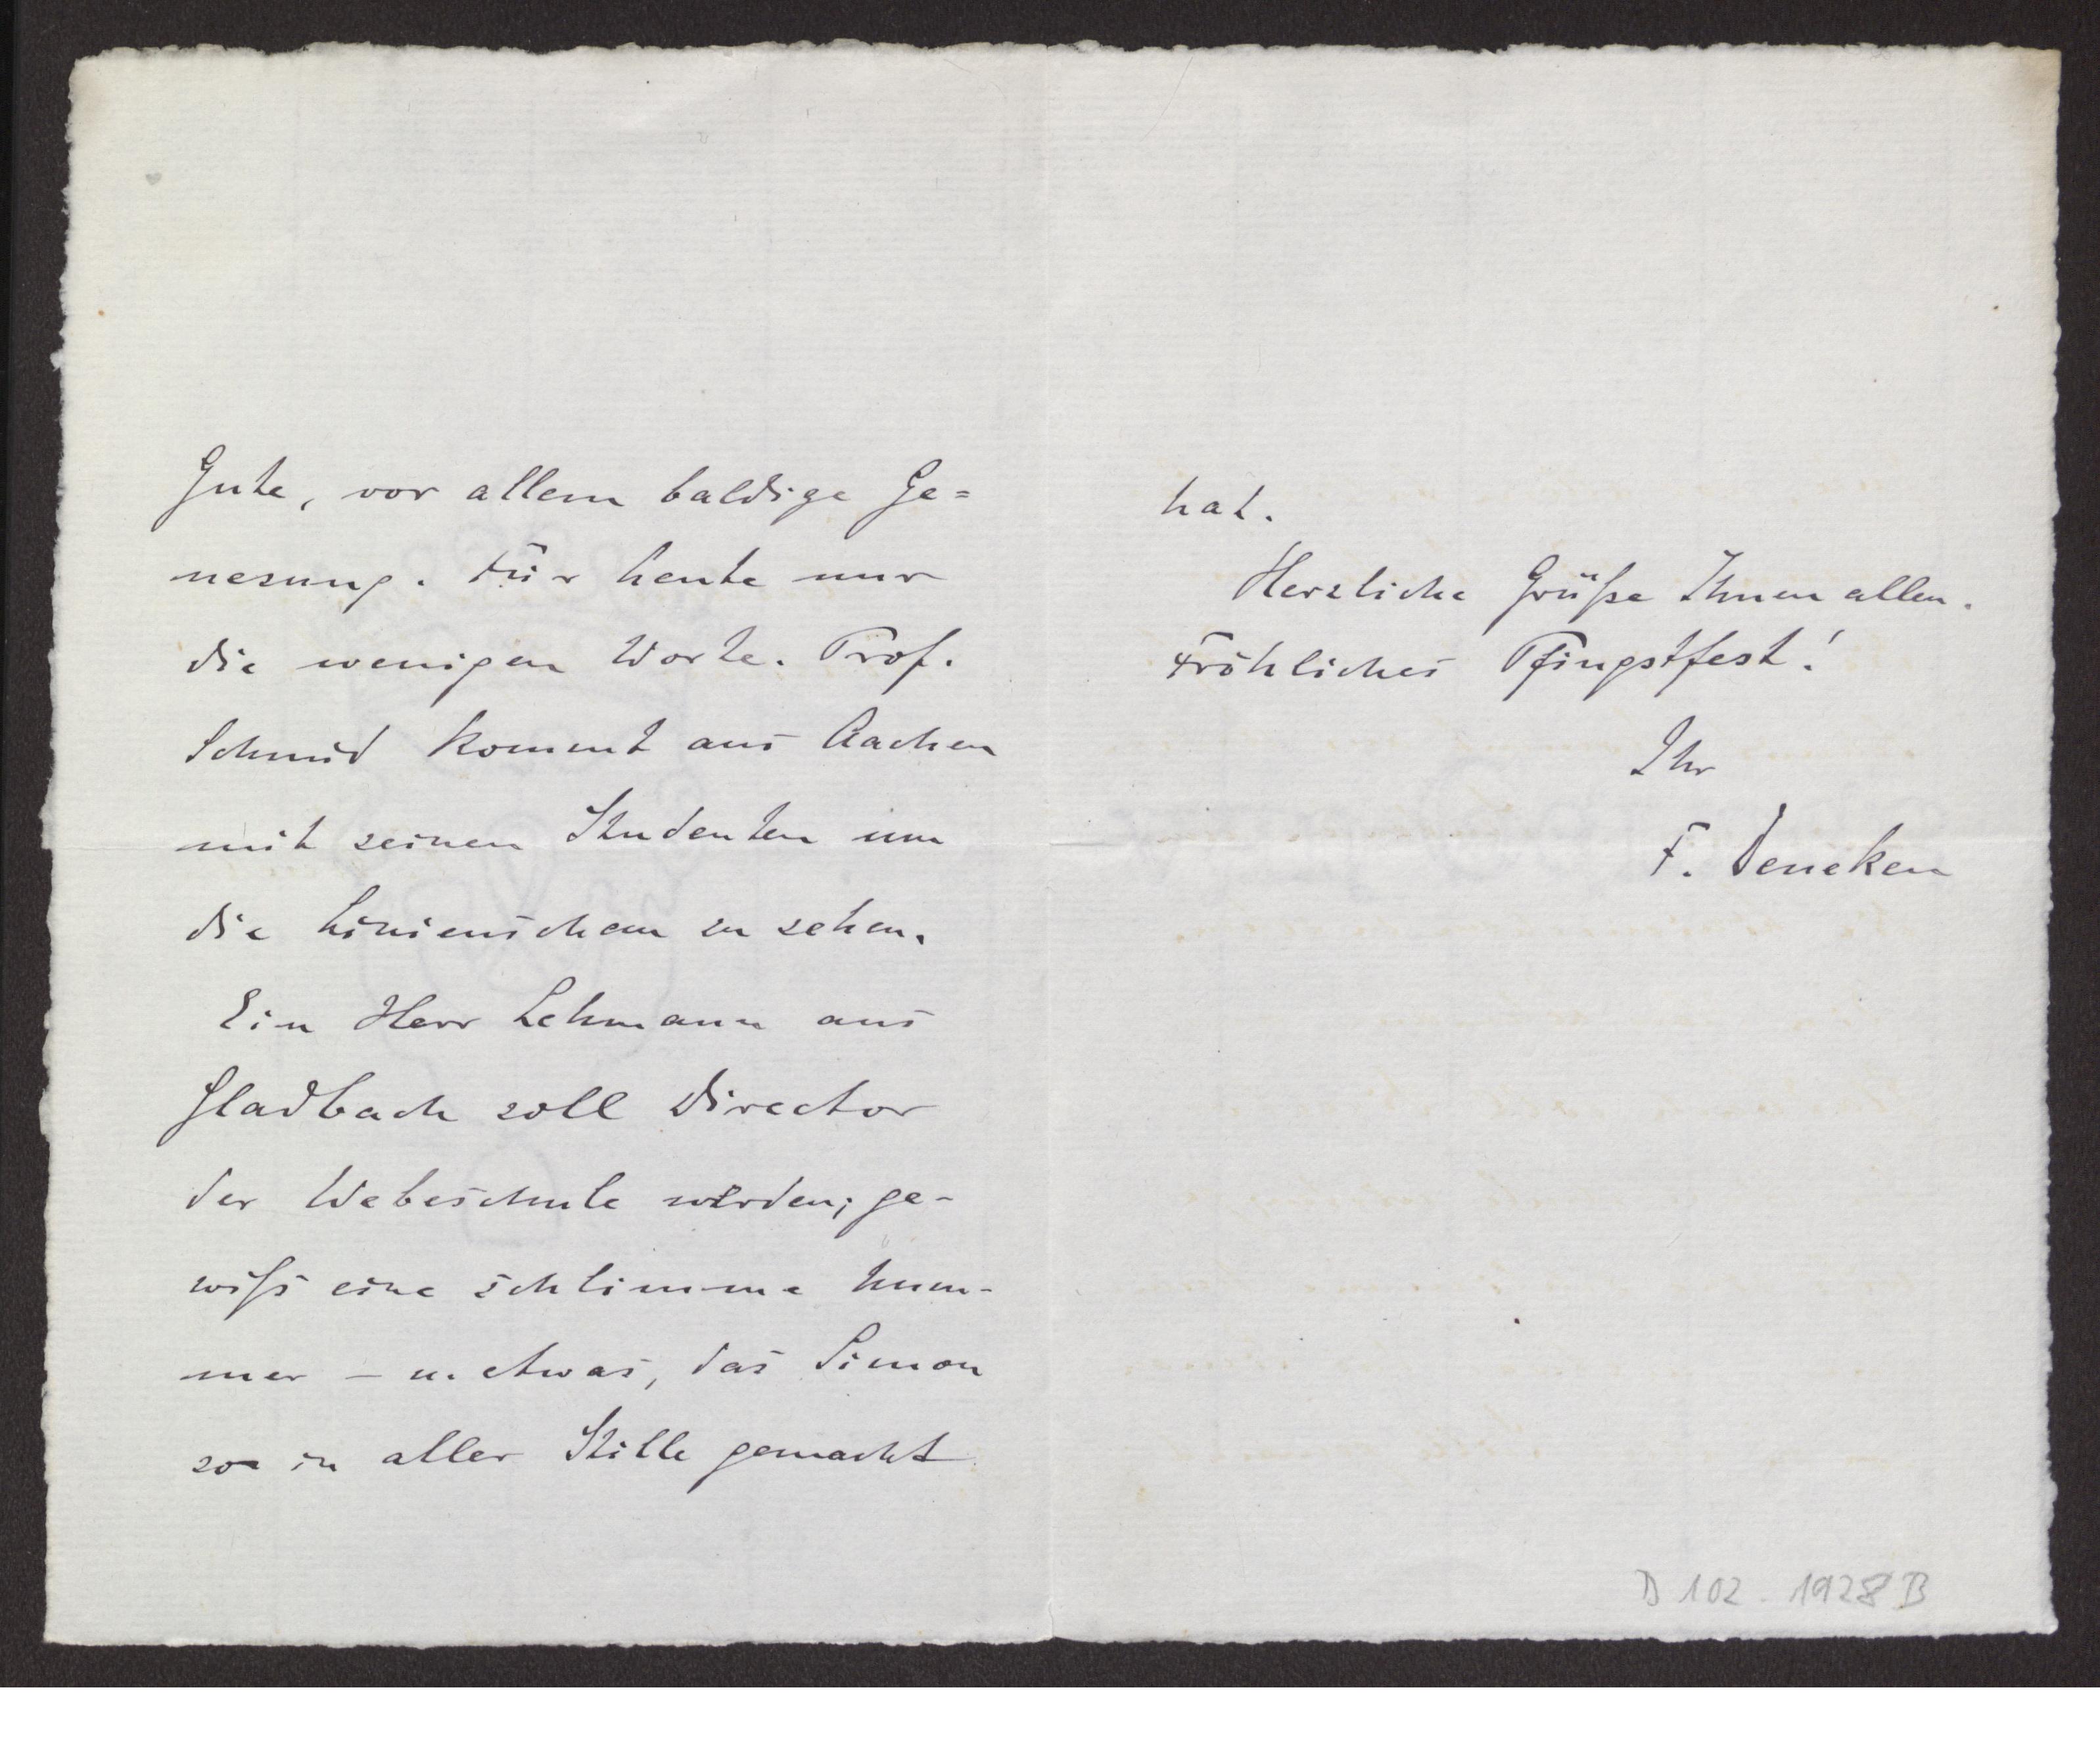 Gute, vor allem baldige Ge=
nesung. Für heute nur
die wenigen Worte. Prof.
Schmid kommt aus Aachen
mit seinen Studenten um
die Linienschau zu sehen.
Ein Herr Lehmann aus
Gladbach soll Director
der Webeschule werden; ge-
wiſs eine schlimme Num-
mer – u. etwas, das Simon
so in aller Stille gemacht
hat.
Herzliche Grüſse Ihnen allen.
Fröhliches Pfingstfest!
Ihr
F. Deneken
D 102 . 1928 B